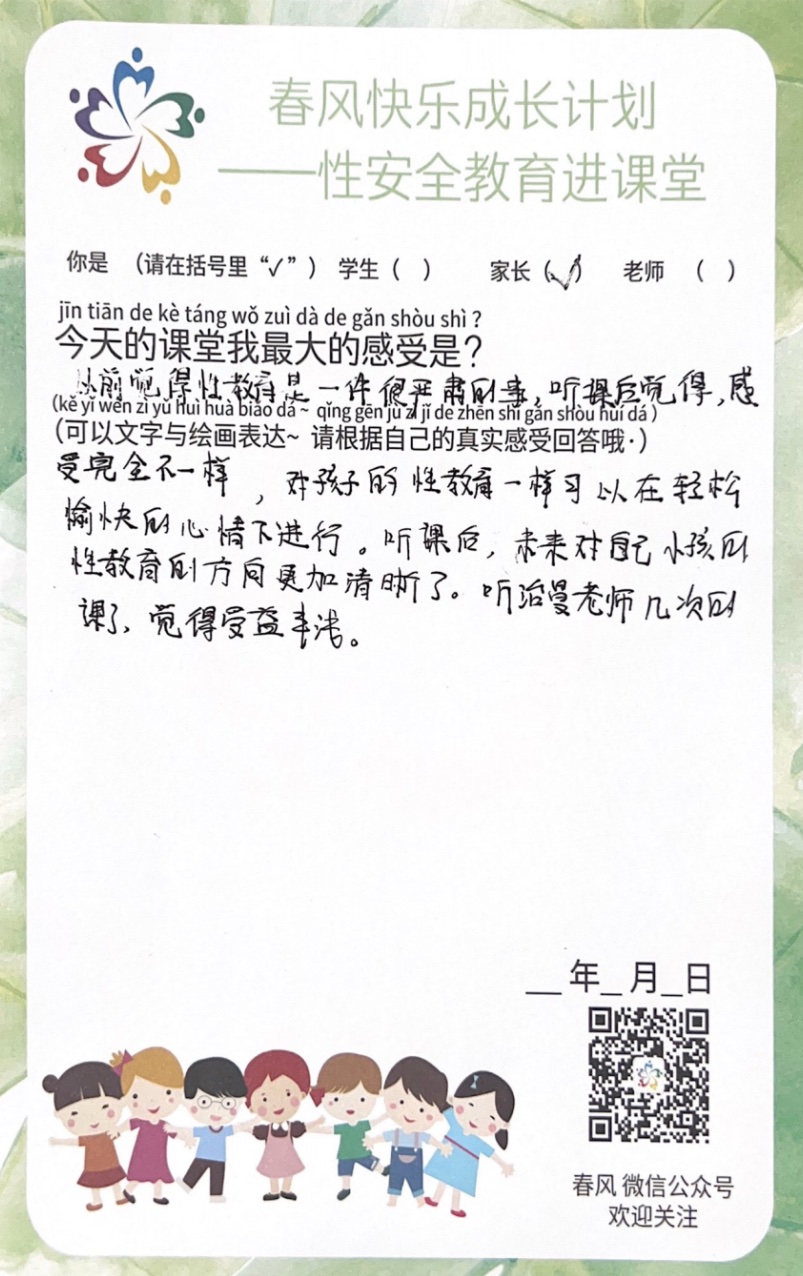 春风快乐成长计划
——性安全教育进课堂
你是 （请在括号里“✓”） 学生（ ） 家长（✓） 老师 （ ）
jīn tiān de kè táng wǒ zuì dà de gǎn shòu shì？
今天的课堂我最大的感受是？
以前觉得性教育是一件很严肃的事，听课后觉得，感
(kě yǐ wén zì yǔ huì huà biǎo dá~ qǐng gēn jù zì jǐ de zhēn shí gǎn shòu huí dá)
（可以文字与绘画表达~ 请根据自己的真实感受回答哦·）
受完全不一样，对孩子的性教育一样可以在轻松
愉快的心情下进行。听课后，未来对自己小孩的
性教育的方向更加清晰了。听滔曼老师几次的
课了，觉得受益丰浅。
__年_月_日
春风 微信公众号
欢迎关注